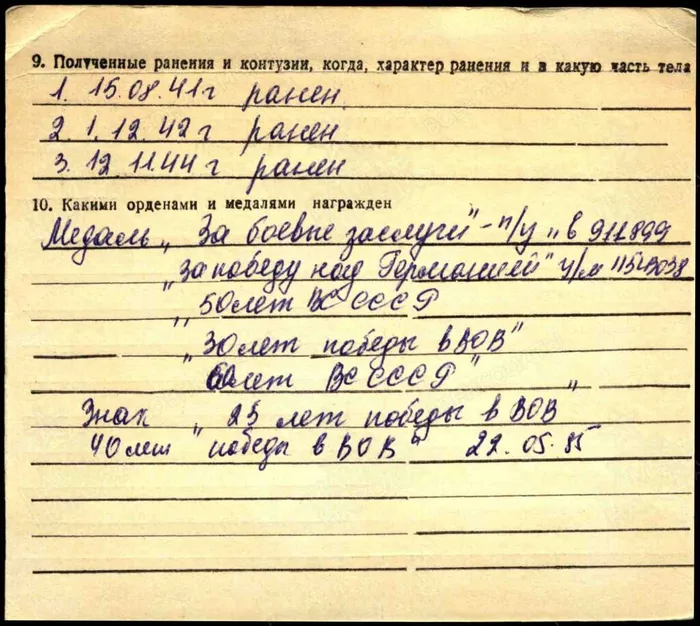 9. Полученные ранения и контузии, когда, характер ранения и в какую часть тела
1. 15.08.41г ранен.
2. 1.12.42 г ранен
3. 12.11.44 г ранен
10. Какими орденами и медалями награжден
Медаль „За боевые заслуги" - п/у „в 911899
„За победу над Германией" у/м
„50 лет ВС СССР
„30 лет победы в ВОВ"
60 лет ВС СССР"
Знак „25 лет победы в ВОВ"
40 лет „победы в ВОВ" 22.05.85